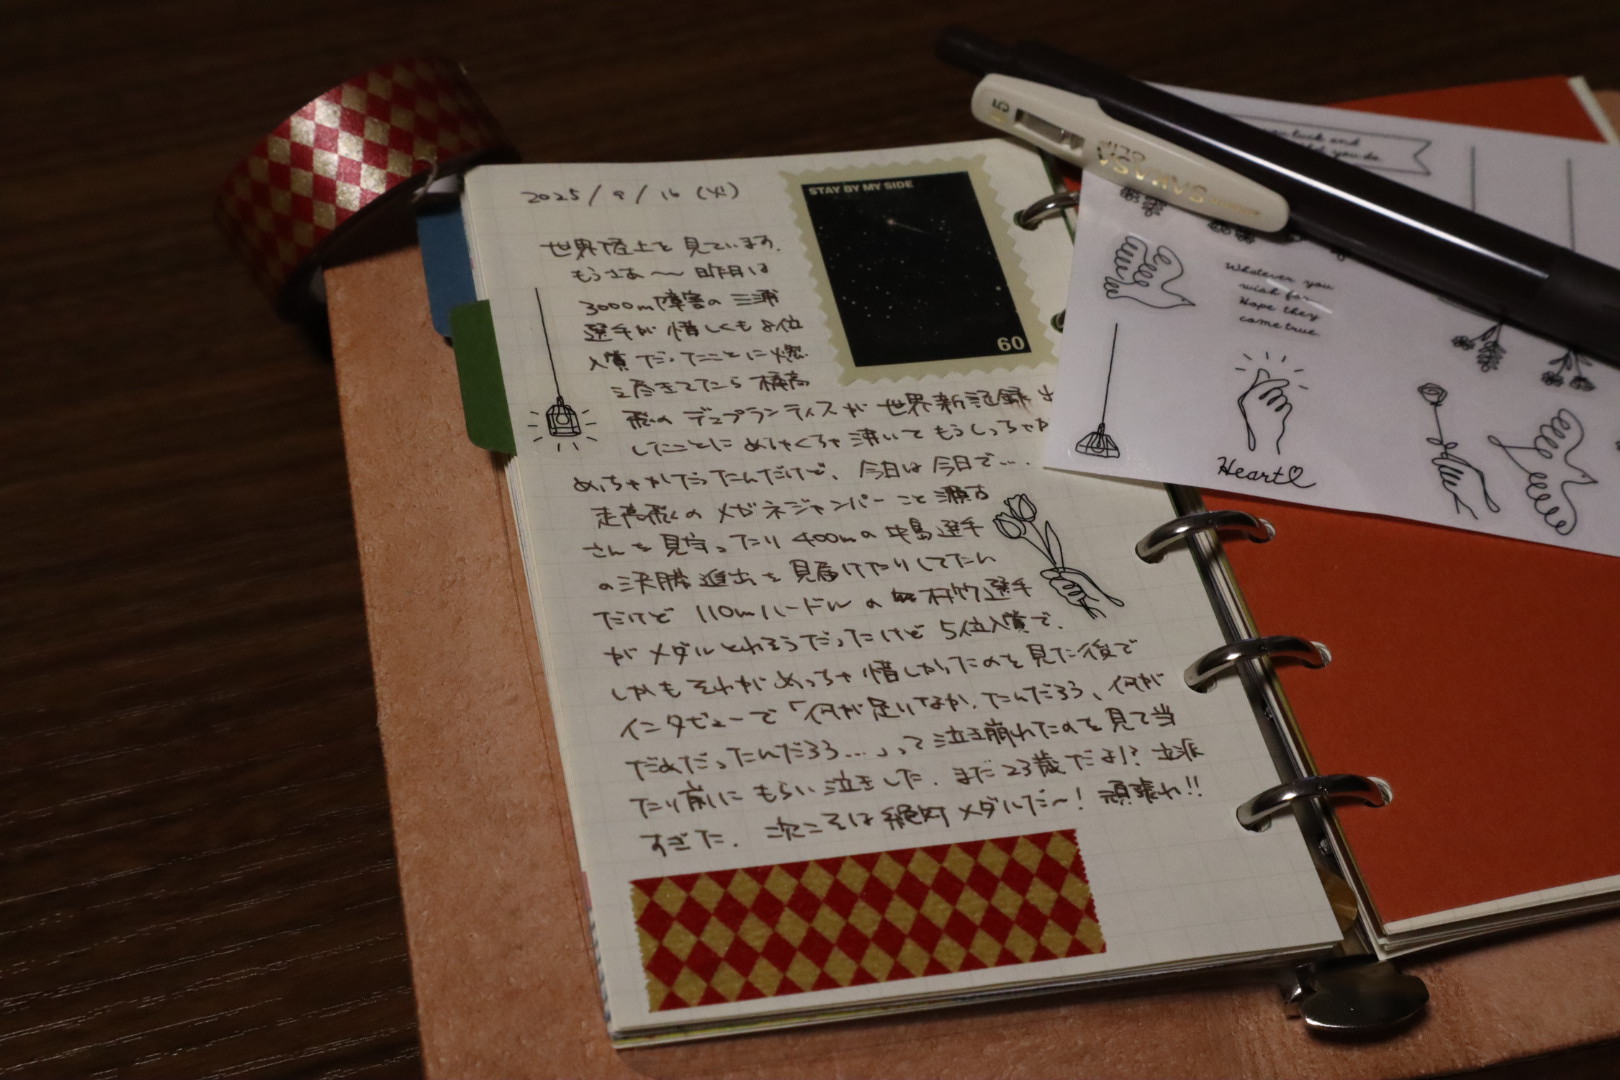 2025/9/16 (火)
STAY BY MY SIDE
60
世界陸上を見ています。
もうさぁ〜〜 昨日は
3000m障害の三浦
選手が惜しくも8位
入賞だったことに燃
え尽きてたら棒高
飛のデュプランティスが世界新記録出
したことにめちゃくちゃ沸いてもうしっちゃか
めっちゃかだったんだけど、今日は今日で...
走高飛のメガネジャンパーこと瀬古
さんを見守ったり400mの中島選手
の決勝進出を見届けたりしてたん
だけど 110mハードルの村竹選手
がメダルとれそうだったけど5位入賞で、
しかもそれがめっちゃ惜しかったのを見た後で
インタビューで「何が足りなかったんだろう、何が
だめだったんだろう...」って泣き崩れたのを見て当
たり前にもらい泣きした。まだ23歳だよ!? 立派
すぎた。次こそは絶対メダルだ〜! 頑張れ!!
0.5
SARASA
CLIP
luck and
you do.
Whatever you
wish for
Hope they
come true.
Heart♡